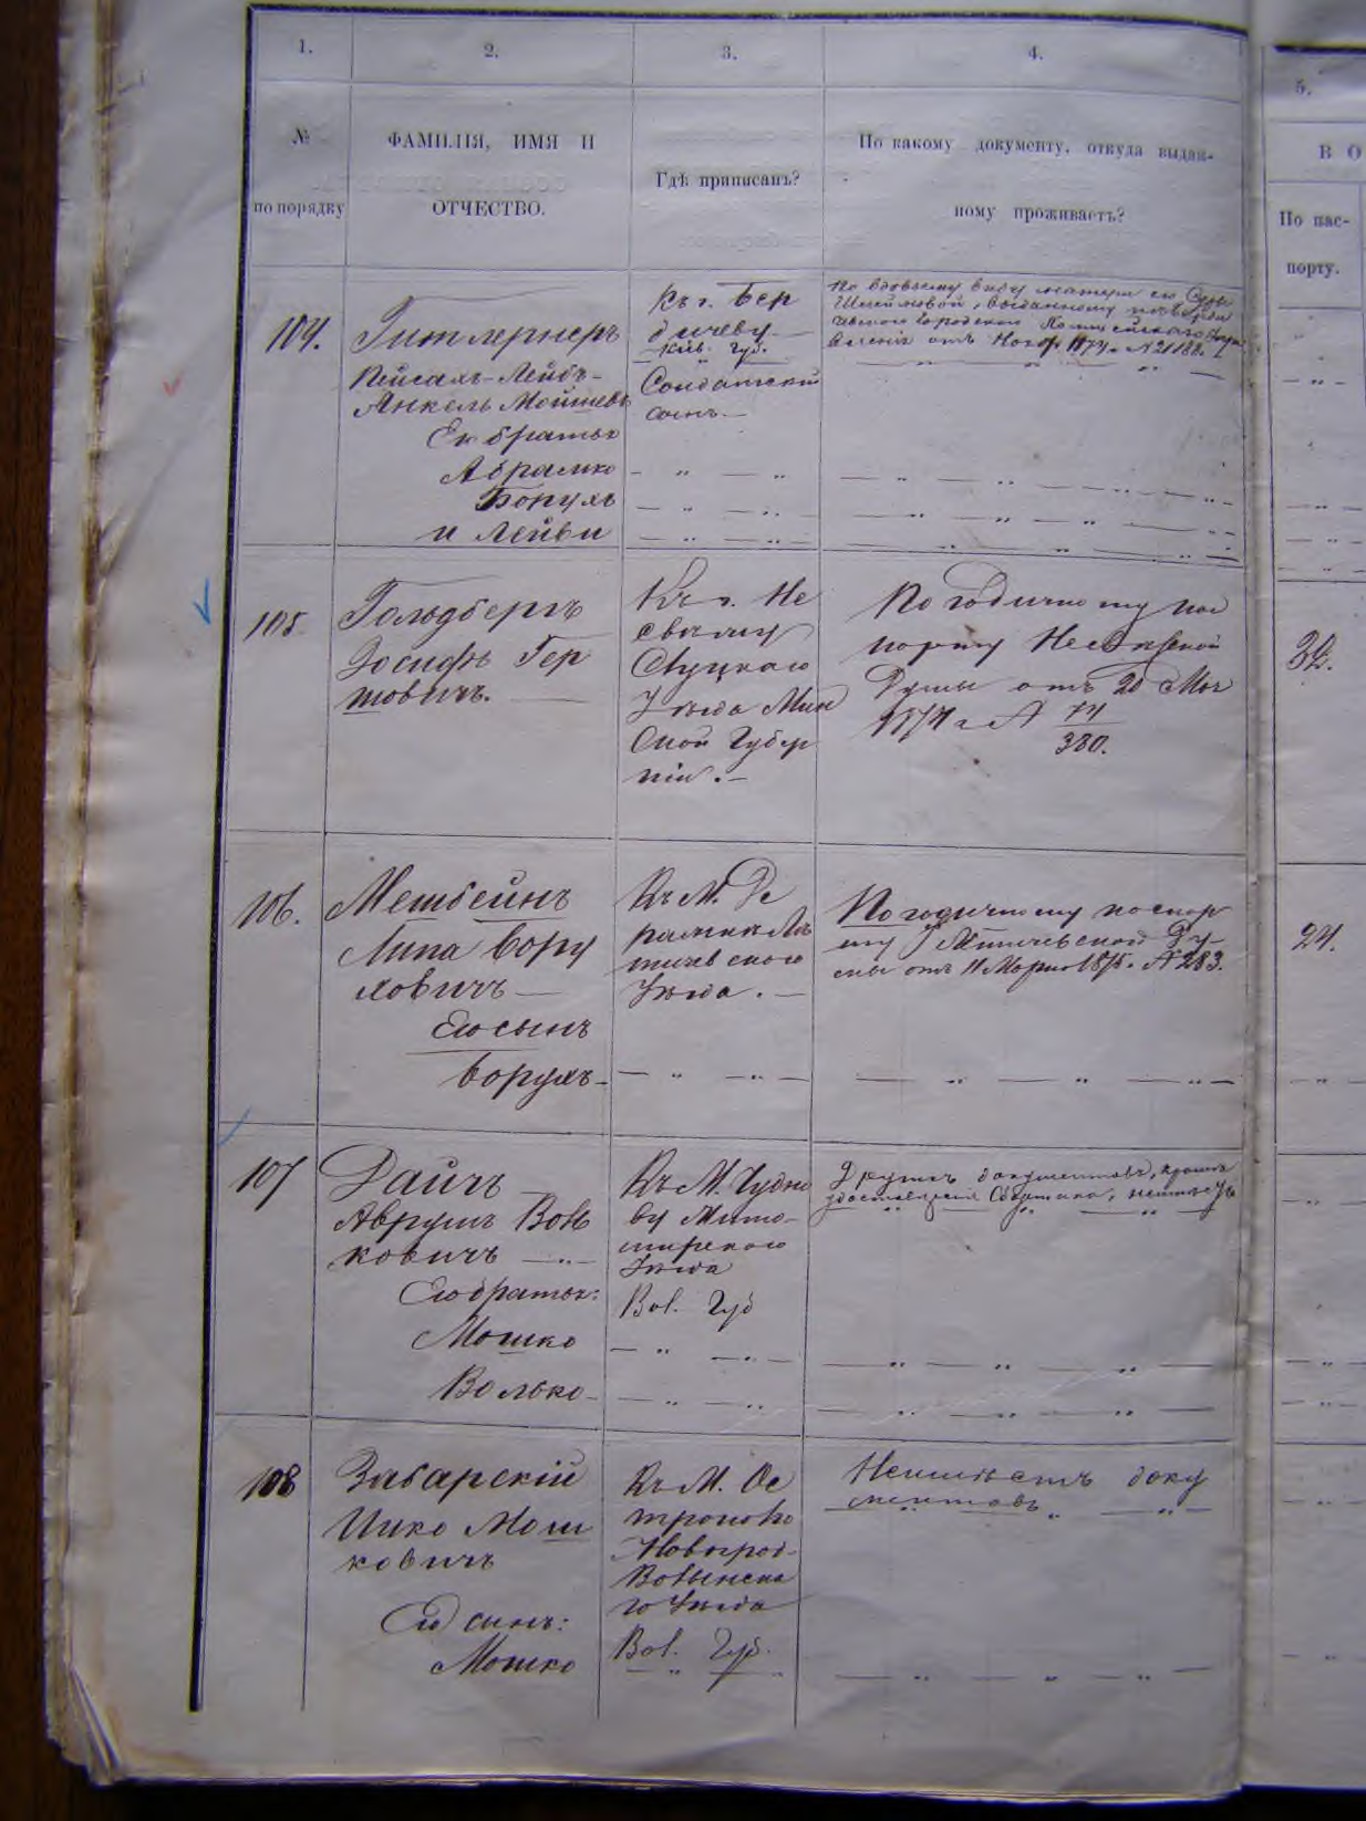 1.
2.
3.
4.
5.
№
по порядку
ФАМИЛІЯ, ИМЯ И
ОТЧЕСТВО.
Гдѣ приписанъ?
По какому документу, откуда выдан-
ному проживаетъ?
В О
По пас-
порту.
104.
Гитлернеръ
Пейсахъ-Лейбъ-
Анкель Мошев
Ею братья
Абрамко
Борухъ
и Лейви
Къ г. Бер
дичеву
Кіев. Губ.
Солдатскій
сынъ.
По вдовьему виду матери ею
Городскою
отъ 1874 г. № 21188.
105
Гольдбергъ
Іосифъ Гер
шовичъ.
Къ г. Не
свижу
Слуцкаго
Уѣзда Мин
ской Губер
ніи.
По годичному пас
порту Несвижской
Думы отъ 20 Мая
1874 г. № 74
380.
32.
106.
Мешбейнъ
Липа Бору
ховичъ
Ею сынъ
Борухъ
Къ М. Де
ражнѣ Ле
тичевскаго
Уѣзда.
По годичному паспор
ту Ду-
мы отъ 11 Марта 1875 г. № 283.
24.
107
Дайчъ
Аврумъ Воль
ковичъ
Ею братья:
Мошко
Волько
Къ М. Чудно
ву Жито-
мирскаго
Уѣзда
Вол. Губ
документовъ, кромѣ
108
Забарскій
Ицко Мош
ковичъ
Ею сынъ:
Мошко
Къ М. Ос
трополю
Новоград-
Волынска
го Уѣзда
Вол. Губ.
Неимѣетъ доку
ментовъ